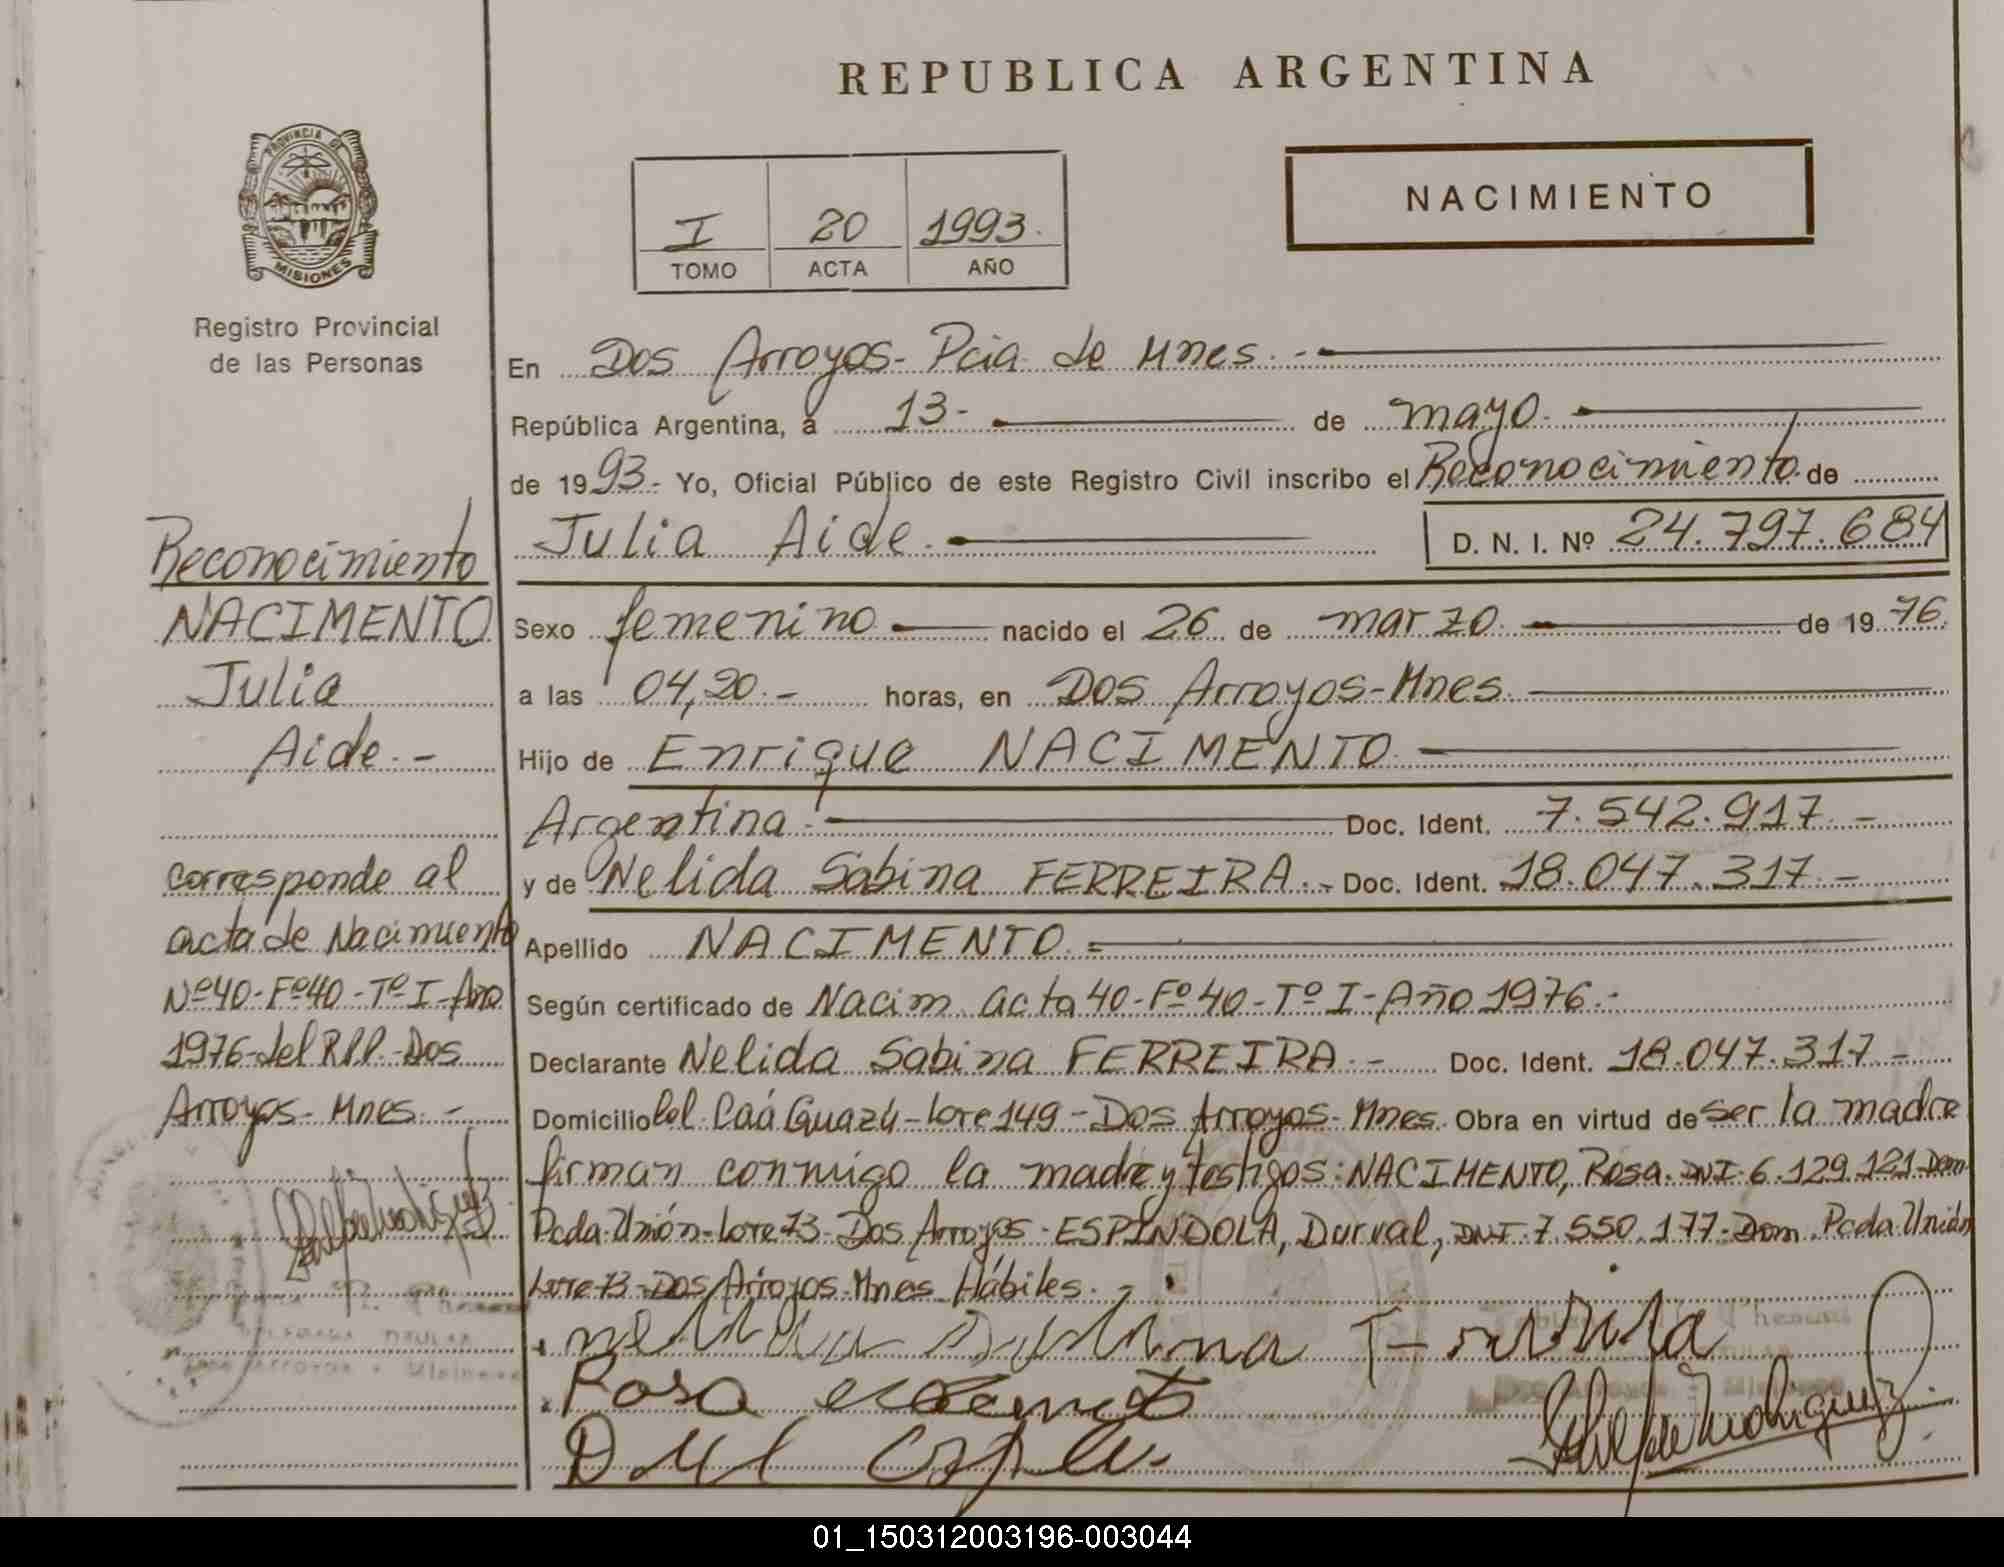 REPUBLICA ARGENTINA
PROVINCIA DE
MISIONES
Registro Provincial
de las Personas
I 20 1993.
TOMO ACTA AÑO
NACIMIENTO
En Dos Arroyos- Pcia de Mnes.-
República Argentina, a 13- de mayo.
de 1993.- Yo, Oficial Público de este Registro Civil inscribo el Reconocimiento de
Julia Aide. D. N. I. Nº 24.797.684
Sexo femenino nacido el 26 de marzo de 1976.
a las 04,20.- horas, en Dos Arroyos-Mnes.
Hijo de Enrique NACIMENTO
Argentina.- Doc. Ident. 7.542.917.-
y de Nelida Sabina FERREIRA.- Doc. Ident. 18.047.317.-
Apellido NACIMENTO.=
Según certificado de Nacim. acta 40-Fº40-Tº I-Año 1976.-
Declarante Nelida Sabina FERREIRA.- Doc. Ident. 18.047.317-
Domicilio Col. Caá Guazú-Lote 149-Dos Arroyos-Mnes. Obra en virtud de ser la madre
firman conmigo la madre y testigos: NACIMENTO, Rosa. DNI. 6.129.121-Dom.
Pcda. Unión-Lote 73-Dos Arroyos- ESPINDOLA, Durval, DNI. 7.550.177-Dom. Pcda. Unión
Lote 73-Dos Arroyos-Mnes. Hábiles.-
Rosa
Reconocimiento
NACIMENTO
Julia
Aide.-
corresponde al
acta de Nacimiento
Nº40-Fº40-Tº I-Año
1976-del R.P.P.-Dos
Arroyos-Mnes.-
01_150312003196-003044